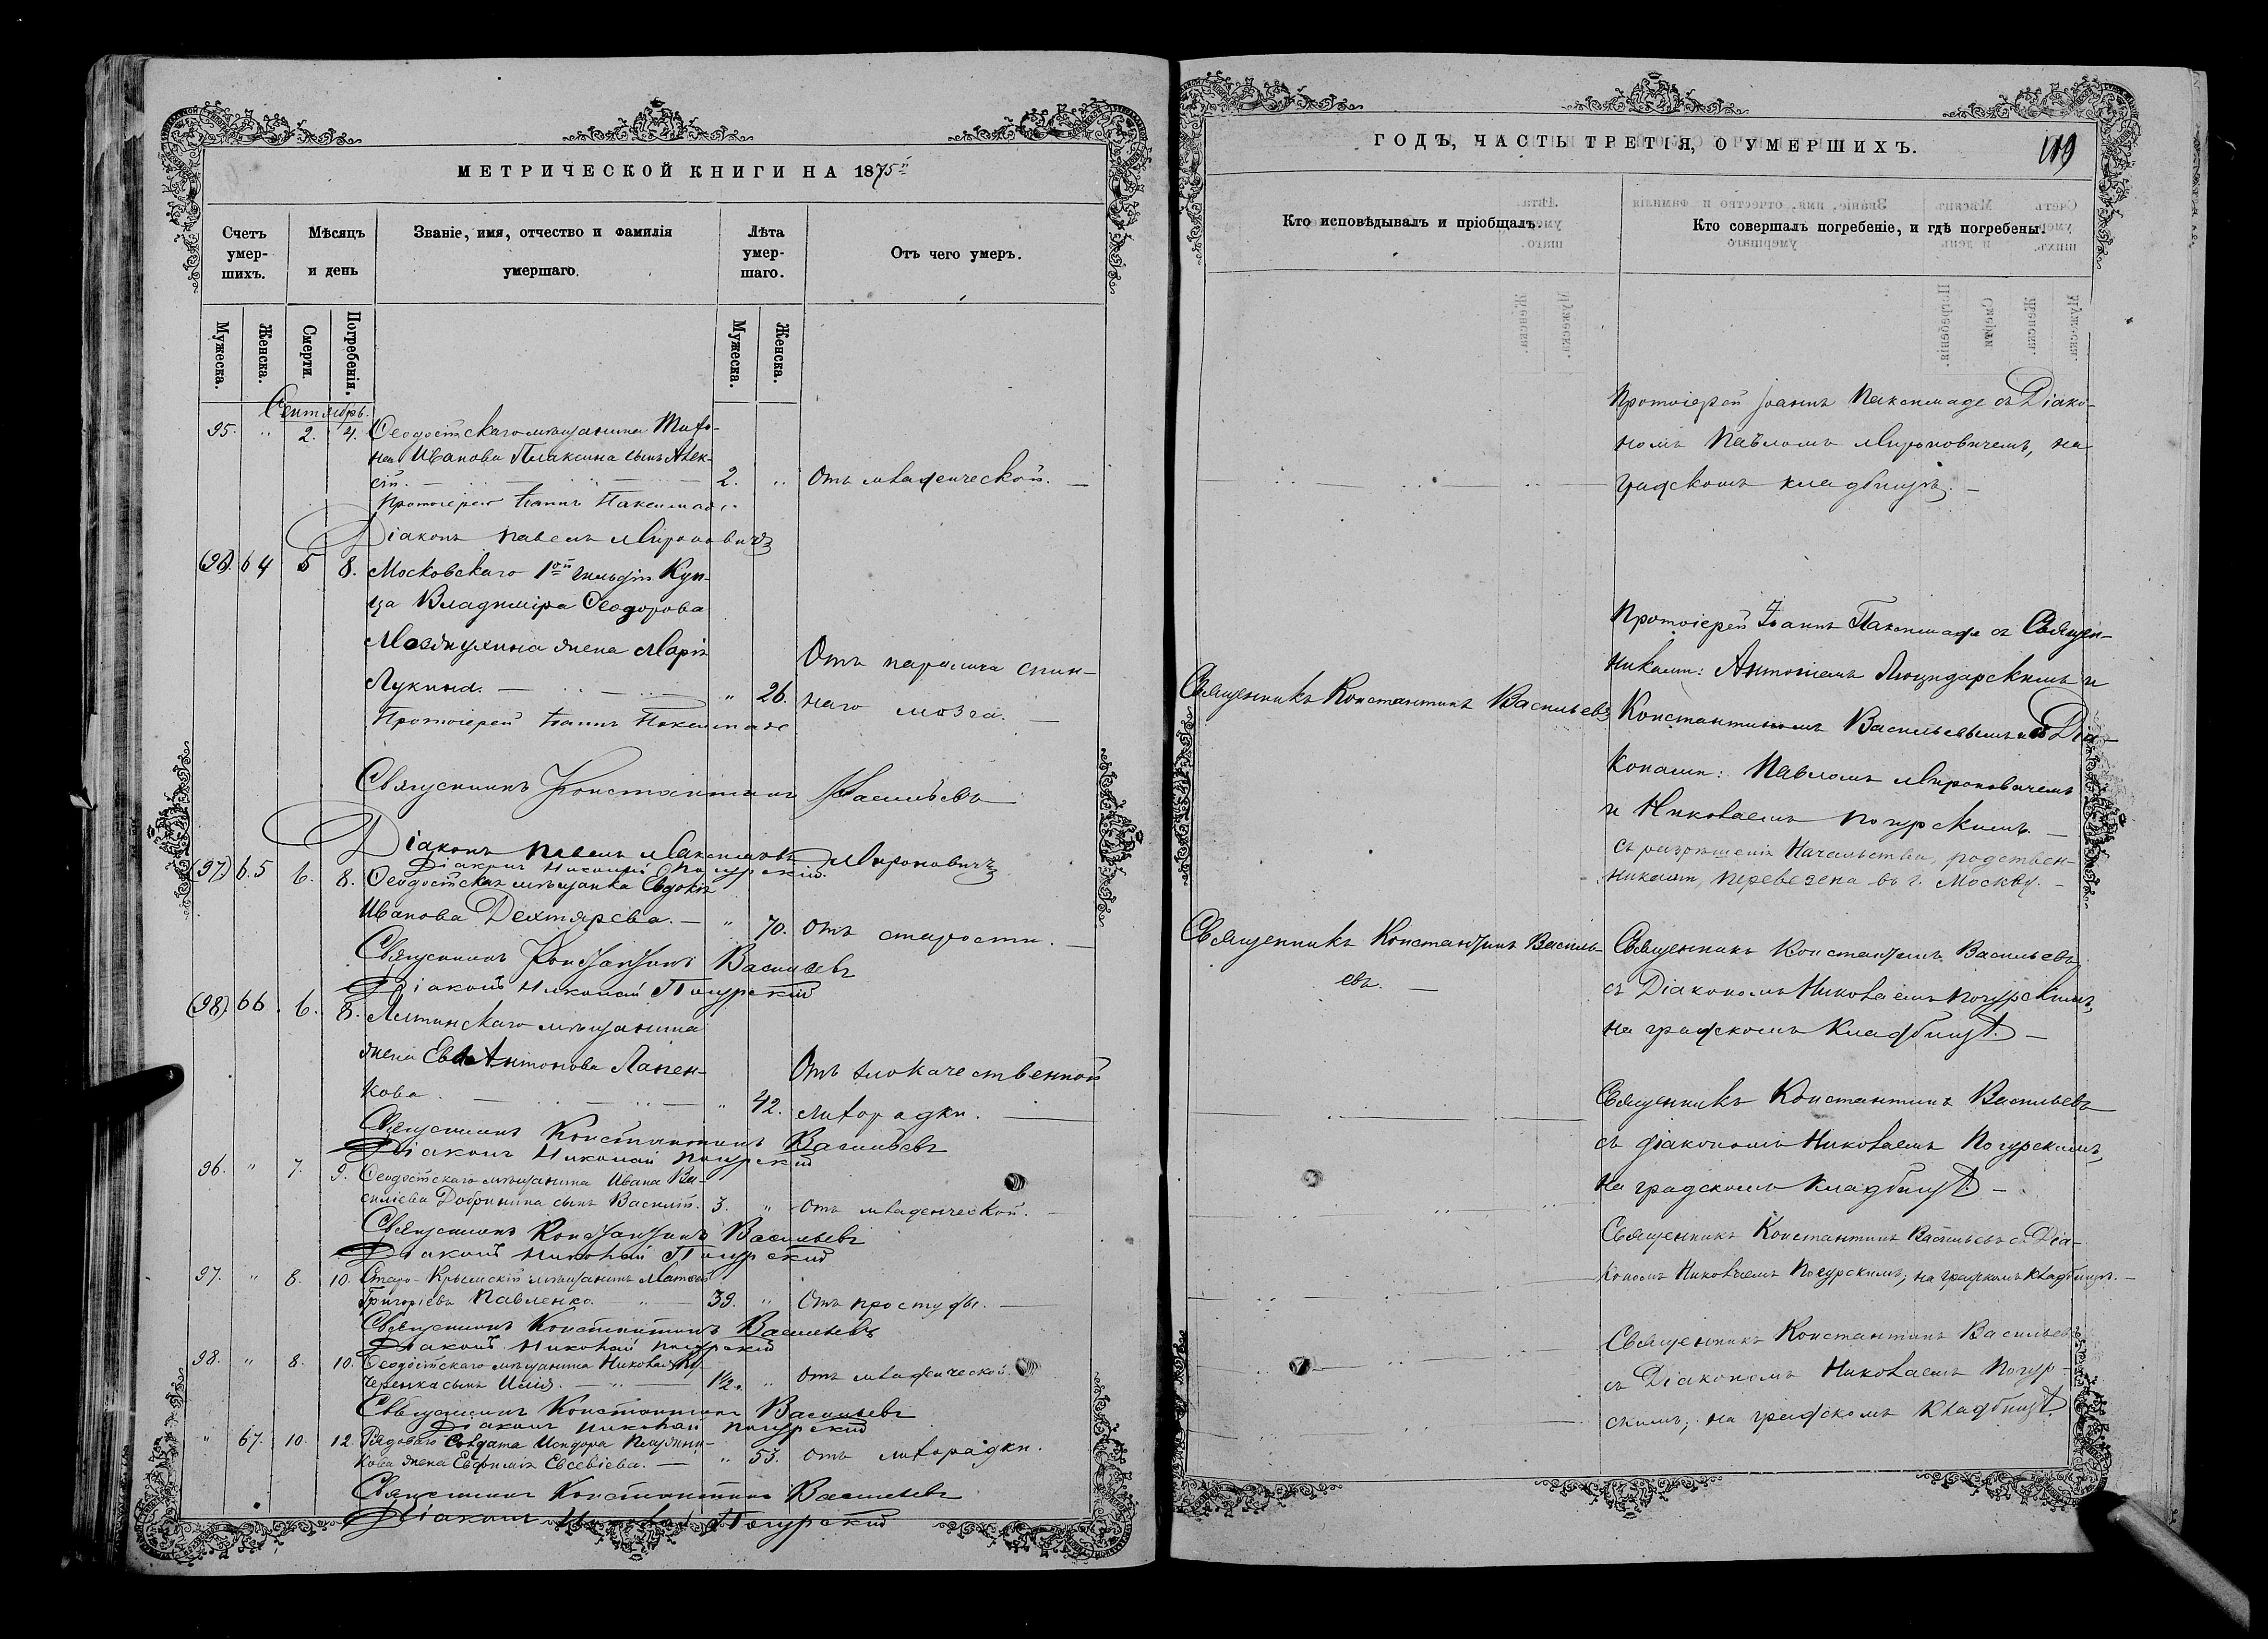 МЕТРИЧЕСКОЙ КНИГИ НА 1875й
Счетъ умер-шихъ.
Мѣсяцъ и день
Званіе, имя, отчество и фамилія умершаго.
Лѣта умер-шаго.
Отъ чего умеръ.
Мужеска.
Женска.
Смерти.
Погребенія.
Мужеска.
Женска.
Сентябрь.
95. " 2. 4. Ѳеодосійскаго мѣщанина Тихо-
на Иванова Плаксина сынъ Алек-
сѣй. 2. " Отъ младенческой.
Протоіерей Іоаннъ Паксимаде
Діаконъ Павелъ Мироновичъ
(96). 64 5 8. Московскаго 1ой гильдіи Куп-
ца Владиміра Ѳеодорова
жена Марія
Лукина. " 26. Отъ паралича спин-
наго мозга.
Протоіерей Іоаннъ Паксимаде
Священникъ Константинъ Васильевъ
Діаконъ Павелъ Максимовъ Мироновичъ
Діаконъ Николай Погурскій.
(97) 65 6. 8. Ѳеодосійская мѣщанка Евдокія
Иванова Дехтярева. " 70. Отъ старости.
Священникъ Константинъ Васильевъ
Діаконъ Николай Погурскій
(98) 66 6. 8. Ялтинскаго мѣщанина
жена Ева Антонова Лапен-
кова. " 42. Отъ злокачественной
лихорадки.
Священникъ Константинъ Васильевъ
Діаконъ Николай Погурскій
96. " 7. 9. Ѳеодосійскаго мѣщанина Ивана Ва-
силіева Добрынина сынъ Василій. 3. " Отъ младенческой.
Священникъ Константинъ Васильевъ
Діаконъ Николай Погурскій
97. " 8. 10. Старо-Крымскій мѣщанинъ Матвѣй
Григоріевъ Павленко. 39. " Отъ простуды.
Священникъ Константинъ Васильевъ
Діаконъ Николай Погурскій
98. " 8. 10. Ѳеодосійскаго мѣщанина Николая
сынъ Илія. 1½. " Отъ младенческой.
Священникъ Константинъ Васильевъ
Діаконъ Николай Погурскій
" 67. 10. 12. Рядоваго Солдата Исидора
жена Евфимія Евсевіева. " 53. Отъ лихорадки.
Священникъ Константинъ Васильевъ
Діаконъ Николай Погурскій
ГОДЪ, ЧАСТЬ ТРЕТІЯ, О УМЕРШИХЪ.
119
Кто исповѣдывалъ и пріобщалъ.
Кто совершалъ погребеніе, и гдѣ погребены.
Протоіерей Іоаннъ Паксимаде съ Діако-
номъ Павломъ Мироновичемъ, на
градскомъ кладбищѣ.
Священникъ Константинъ Васильевъ
Протоіерей Іоаннъ Паксимаде съ Священ-
никами: Антоніемъ и
Константиномъ Васильевымъ и съ Діа-
конами: Павломъ Мироновичемъ
и Николаемъ Погурскимъ.
съ разрѣшенія Начальства, родствен-
никами, перевезена въ г. Москву.
Священникъ Константинъ Василь-
евъ.
Священникъ Константинъ Васильевъ
съ Діакономъ Николаемъ Погурскимъ,
на градскомъ кладбищѣ.
Священникъ Константинъ Васильевъ
съ діакономъ Николаемъ Погурскимъ,
на градскомъ кладбищѣ.
Священникъ Константинъ Васильевъ съ Діа-
кономъ Николаемъ Погурскимъ, на градскомъ кладбищѣ.
Священникъ Константинъ Васильевъ
съ Діакономъ Николаемъ Погур-
скимъ; на градскомъ кладбищѣ.